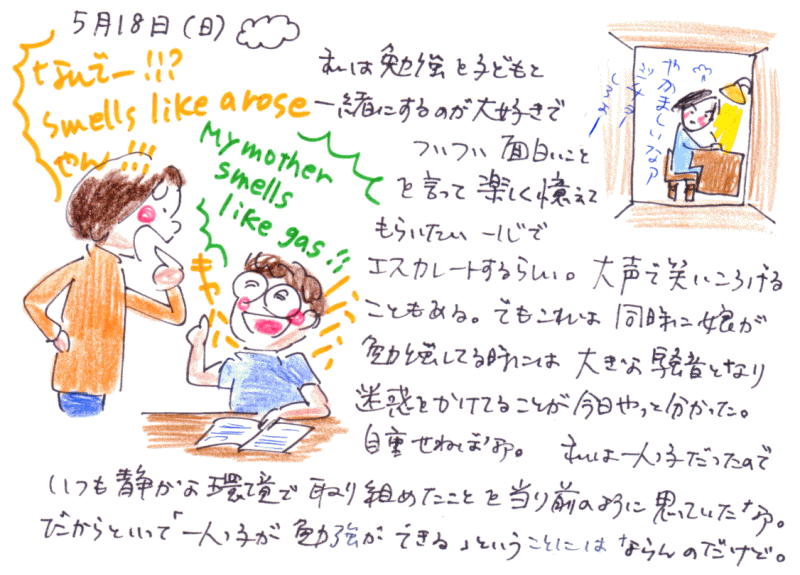 5月18日(日)
なんでー!!?
smells like a rose
やん!!!
My mother
smells
like gas!!
キャハハ
やかましいなァ
しろよー
私は勉強を子どもと
一緒にするのが大好きで
ついつい面白いこと
を言って楽しく憶えて
もらいたい一心で
エスカレートするらしい。大声で笑いころげる
こともある。でもこれは同時に娘が
勉強してる時には大きな騒音となり
迷惑をかけてることが今日やっと分かった。
自重せねばなァ。私は一人っ子だったので
いつも静かな環境で取り組めたことを当り前のように思っていたなァ。
だからといって「一人っ子が勉強ができる」ということにはならんのだけど。